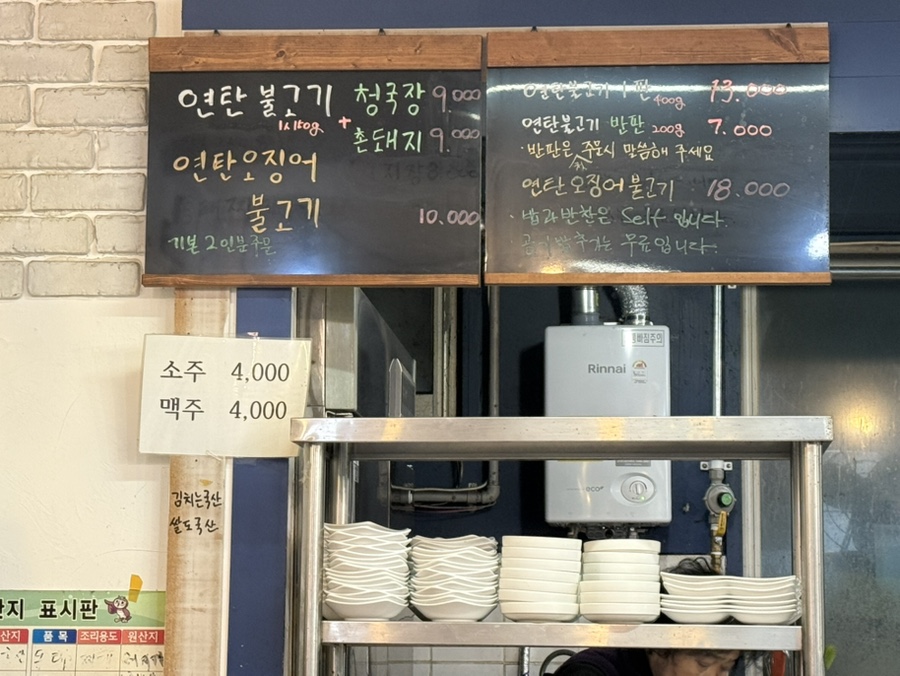 연탄 불고기 청국장 9.000
1人150g + 촌돼지 9.000
연탄오징어
불고기 10.000
기본 2인분주문
연탄불고기 1판 400g 13.000
연탄불고기 반판 200g 7.000
·반판은 주문시 말씀해 주세요
연탄 오징어 불고기 18.000
·밥과 반찬은 Self 입니다.
공기밥추가는 무료입니다.
소주 4,000
맥주 4,000
Rinnai
eco
김치는국산
쌀도국산
산지 표시판
산지 품목 조리용도 원산지